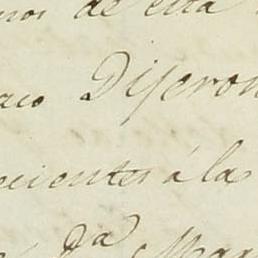 nos de esta
aco Dijeron
ecientes á la
da Mar